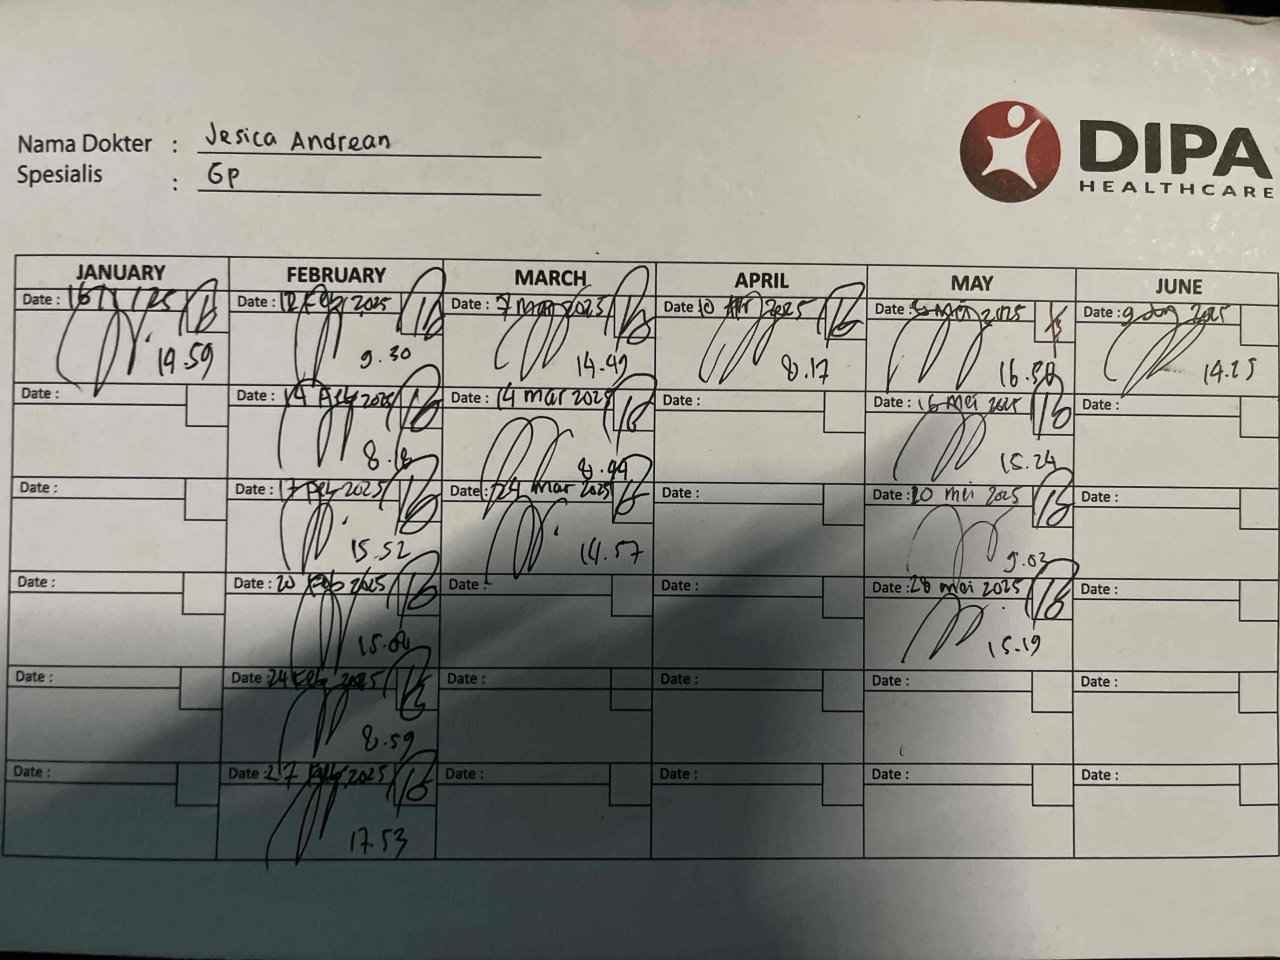 Nama Dokter : Jesica Andrean
Spesialis : Gp
DIPA
HEALTHCARE
JANUARY FEBRUARY MARCH APRIL MAY JUNE
Date : 16 / 1 / 25 Date : 12 Feb 2025 Date : 7 mar 2025 Date : 10 Apr 2025 Date : Mei 2025 Date : 9 Jun 2025
14.59 9.30 14.49 8.17 16.58 14.25
Date : Date : 14 Feb 2025 Date : 14 mar 2025 Date : Date : 16 mei 2025 Date :
8.18 8.44 15.24
Date : Date : 17 Feb 2025 Date : 24 mar 2025 Date : Date : 20 mei 2025 Date :
15.52 14.57 9.02
Date : Date : 20 Feb 2025 Date : Date : Date : 28 mei 2025 Date :
15.04 15.19
Date : Date : 24 Feb 2025 Date : Date : Date : Date :
8.59
Date : Date : 27 Feb 2025 Date : Date : Date : Date :
17.53